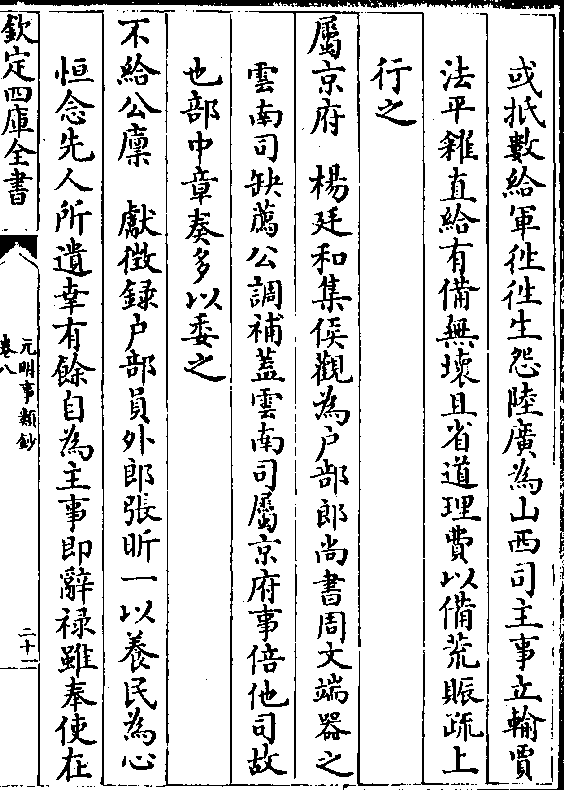 或抵數給軍徃徃生怨陸廣為山西司主事立輸賈
法平糴直給有備無壊且省道理費以備荒賑疏上
行之
屬京府　楊廷和集侯觀為户部郎尚書周文端器之
雲南司缺薦公調補蓋雲南司屬京府事倍他司故
也部中章奏多以委之
不給公廩　獻徴録户部員外郎張昕一以養民為心
恒念先人所遺幸有餘自為主事即辭禄雖奉使在
欽定四庫全書
元明事類鈔
卷八
二十一